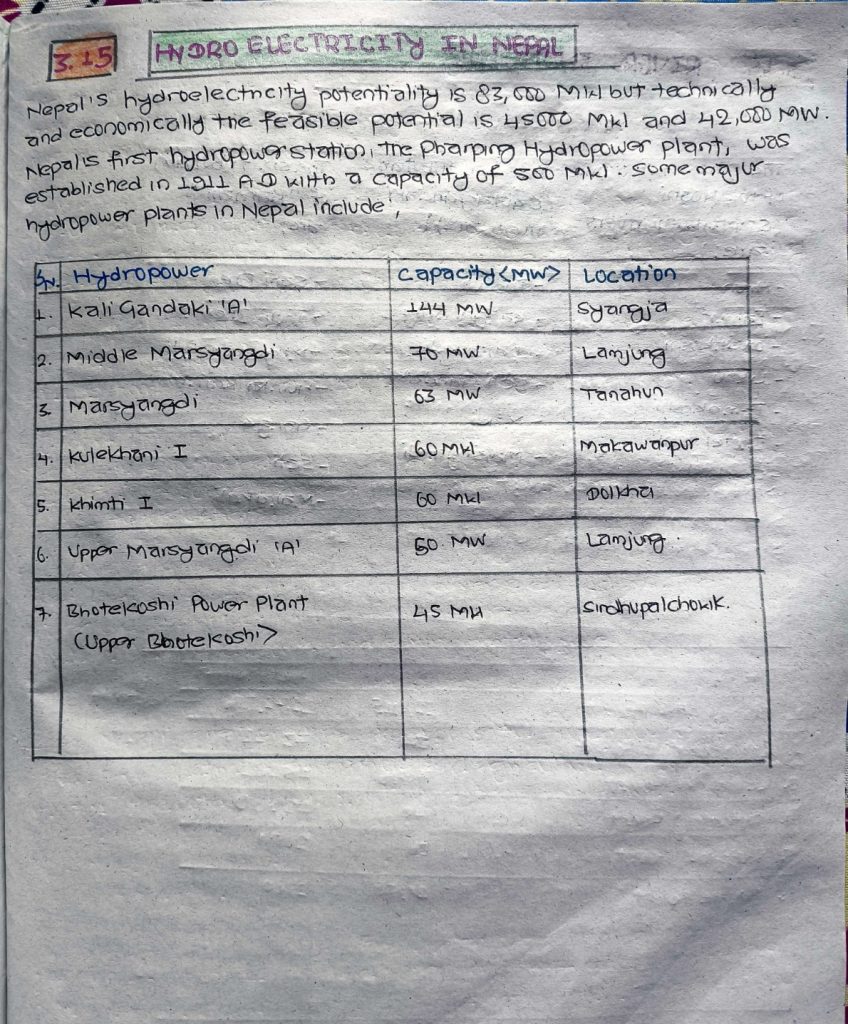 3.15 HYDRO ELECTRICITY IN NEPAL
Nepal's hydroelectricity potentiality is 83,000 MW but technically
and economically the feasible potential is 45000 MW and 42,000 MW.
Nepal's first hydropower station, the Pharping Hydropower plant, was
established in 1911 A.D with a capacity of 500 MW. some major
hydropower plants in Nepal include',
SN. Hydropower Capacity <MW> Location
1. Kali Gandaki 'A' 144 MW Syangja
2. Middle Marsyangdi 70 MW Lamjung
3. Marsyangdi 63 MW Tanahun
4. Kulekhani I 60 MW Makawanpur
5. Khimti I 60 MW Dolkha
6. Upper Marsyangdi 'A' 50. MW Lamjung.
7. Bhotekoshi Power Plant 45 MW Sindhupalchowk.
(Upper Bhotekoshi>